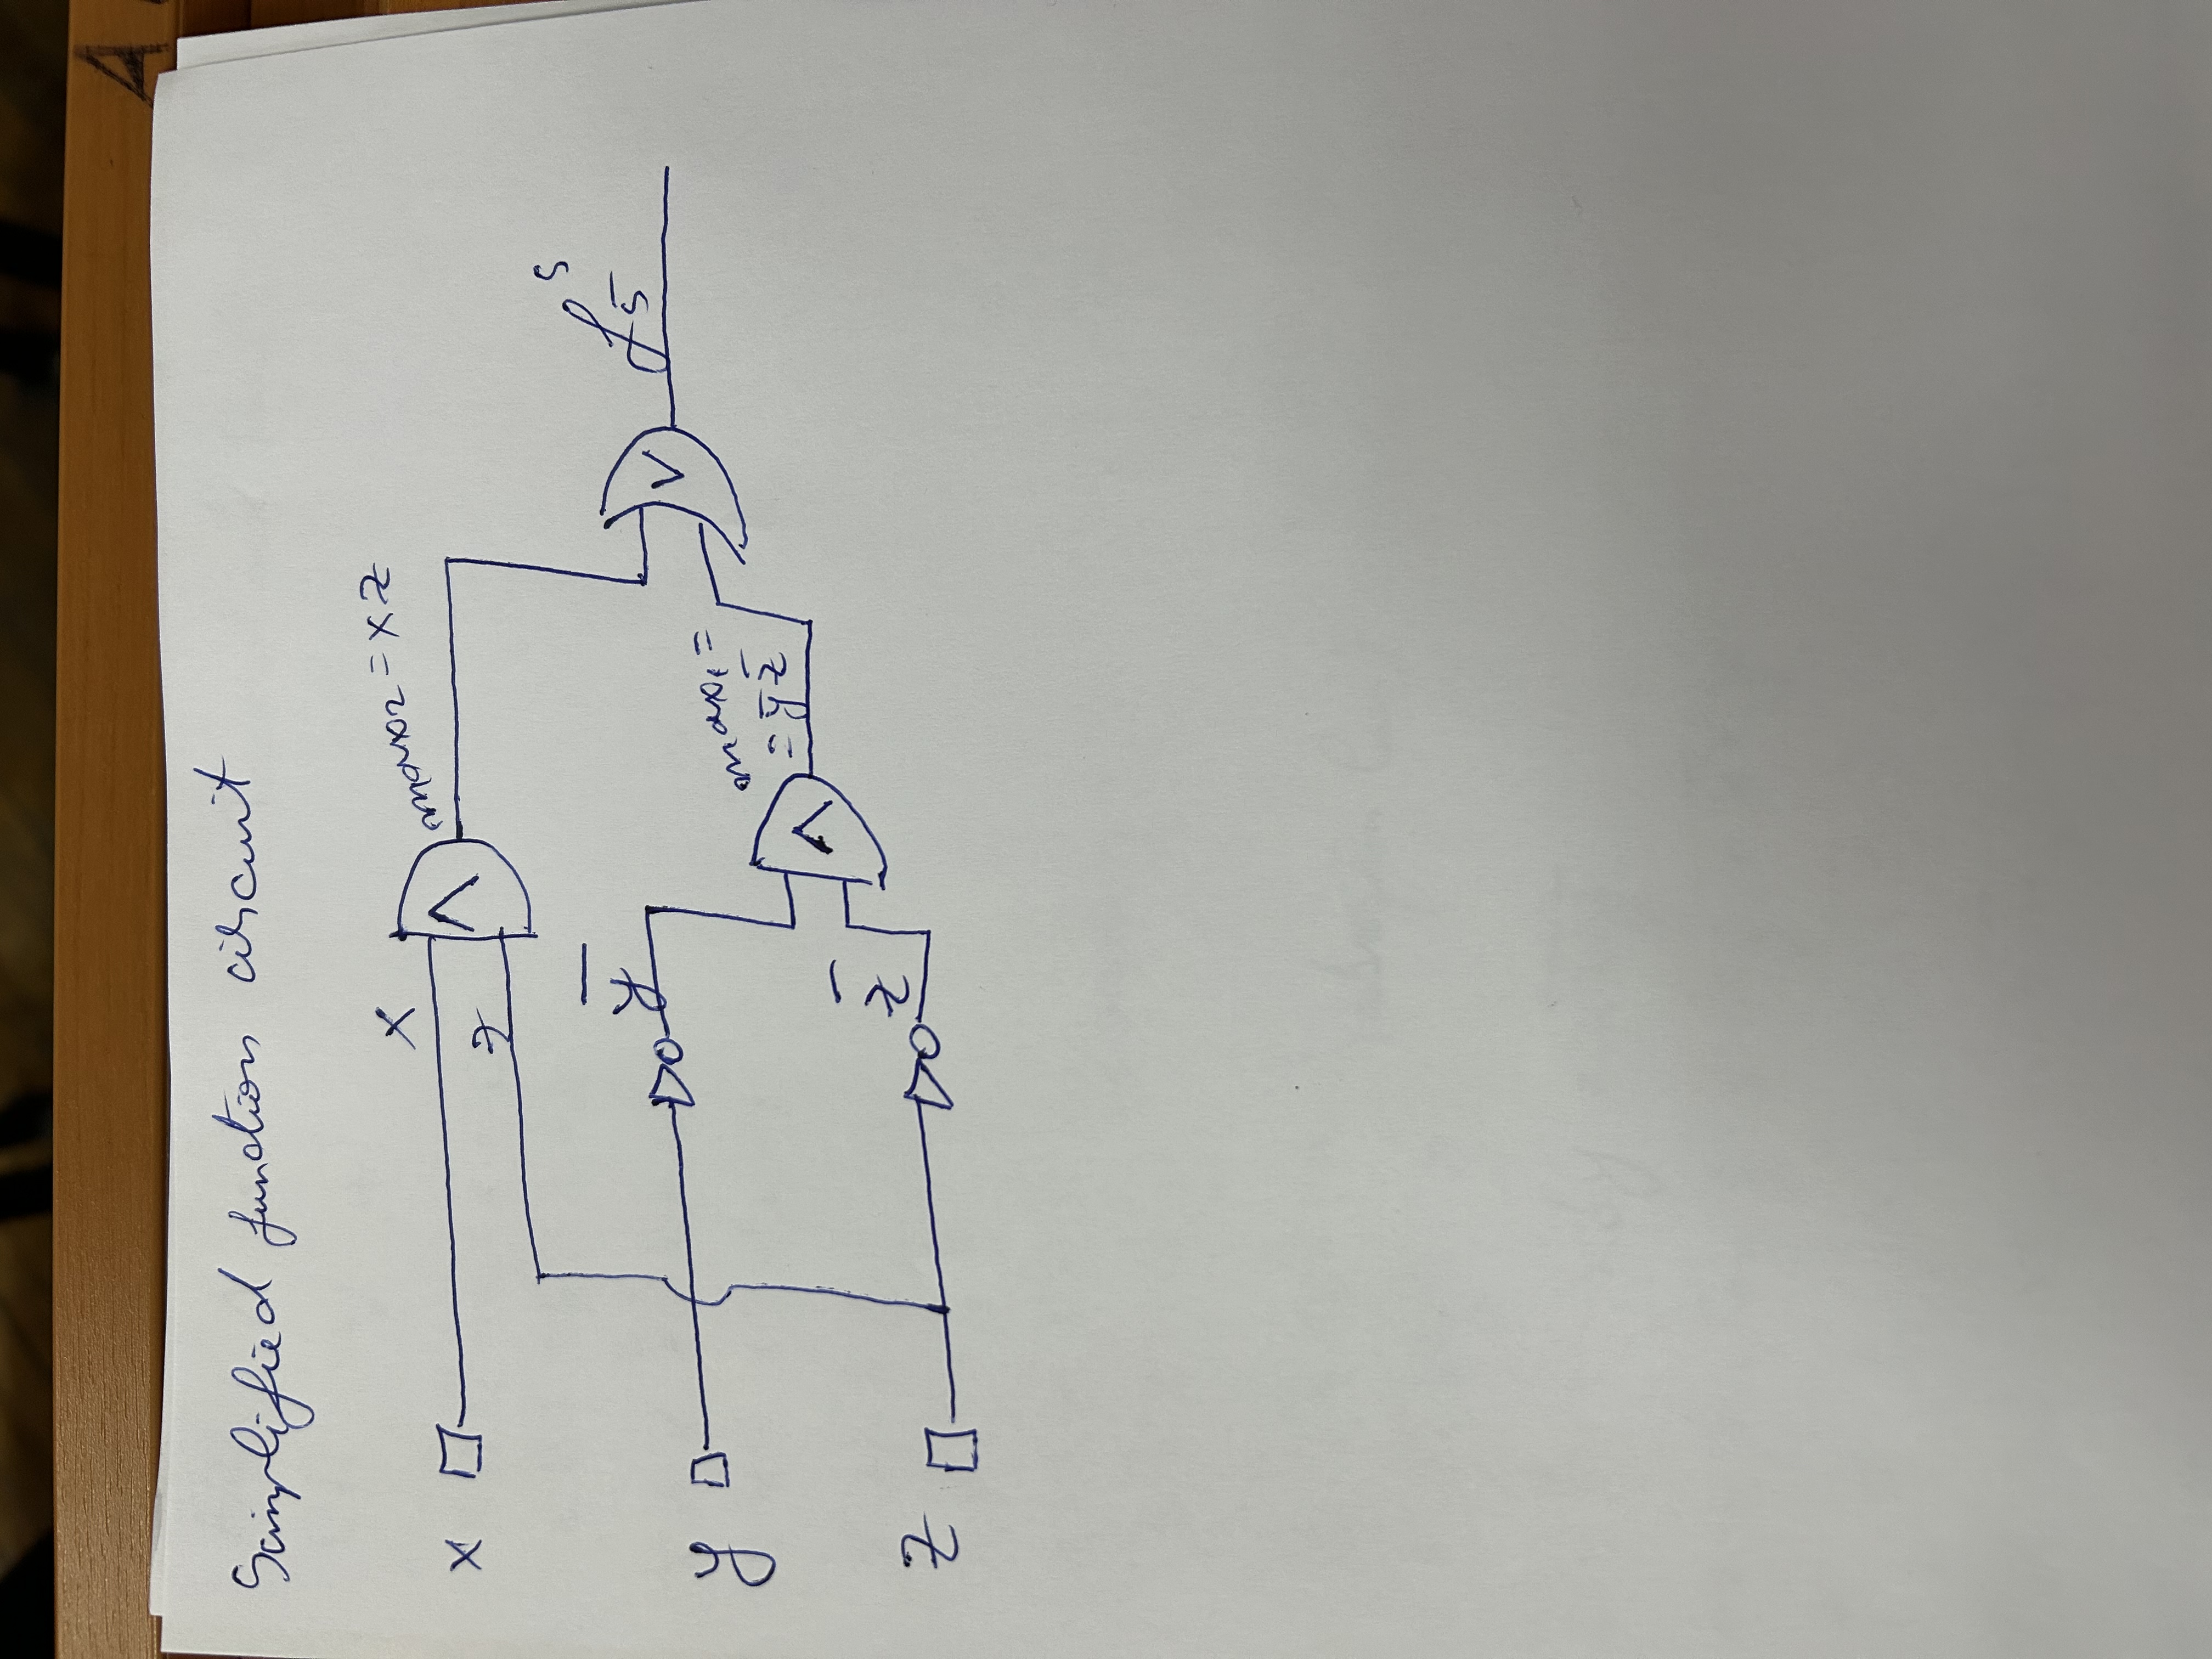 Simplified function circuit
x
x
z
∧
max₂ = x z
y
y̅
z
z̅
∧
max₁ =
= y̅ z̅
∨
f₅ˢ
A